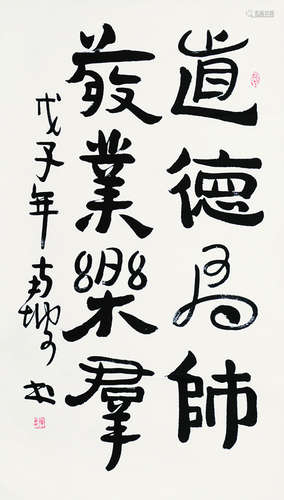 道德為師
敬業樂羣
戊子年
书